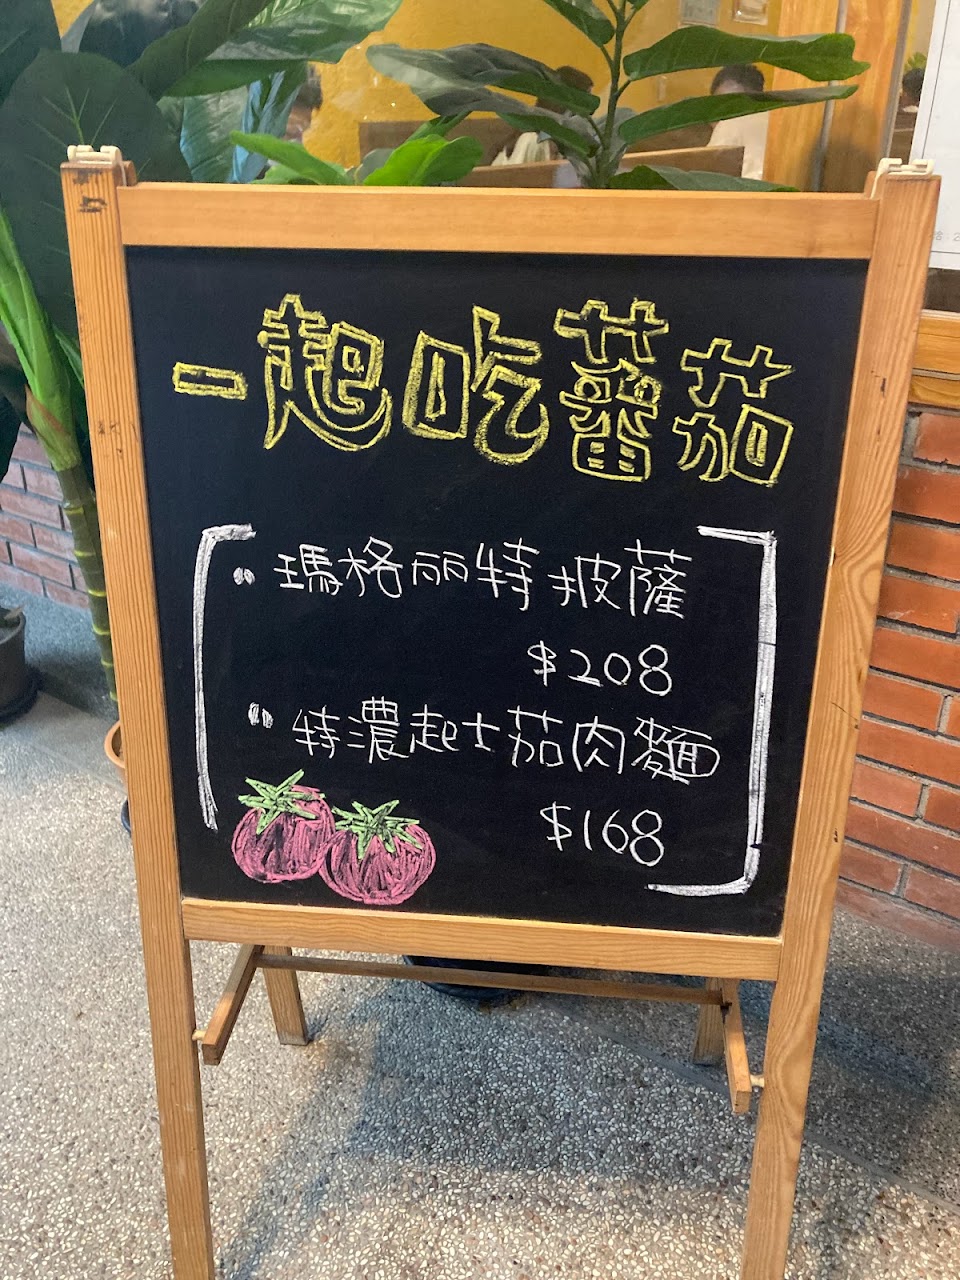 一起吃蕃茄
瑪格麗特披薩
$208
特濃起士茄肉麵
$168